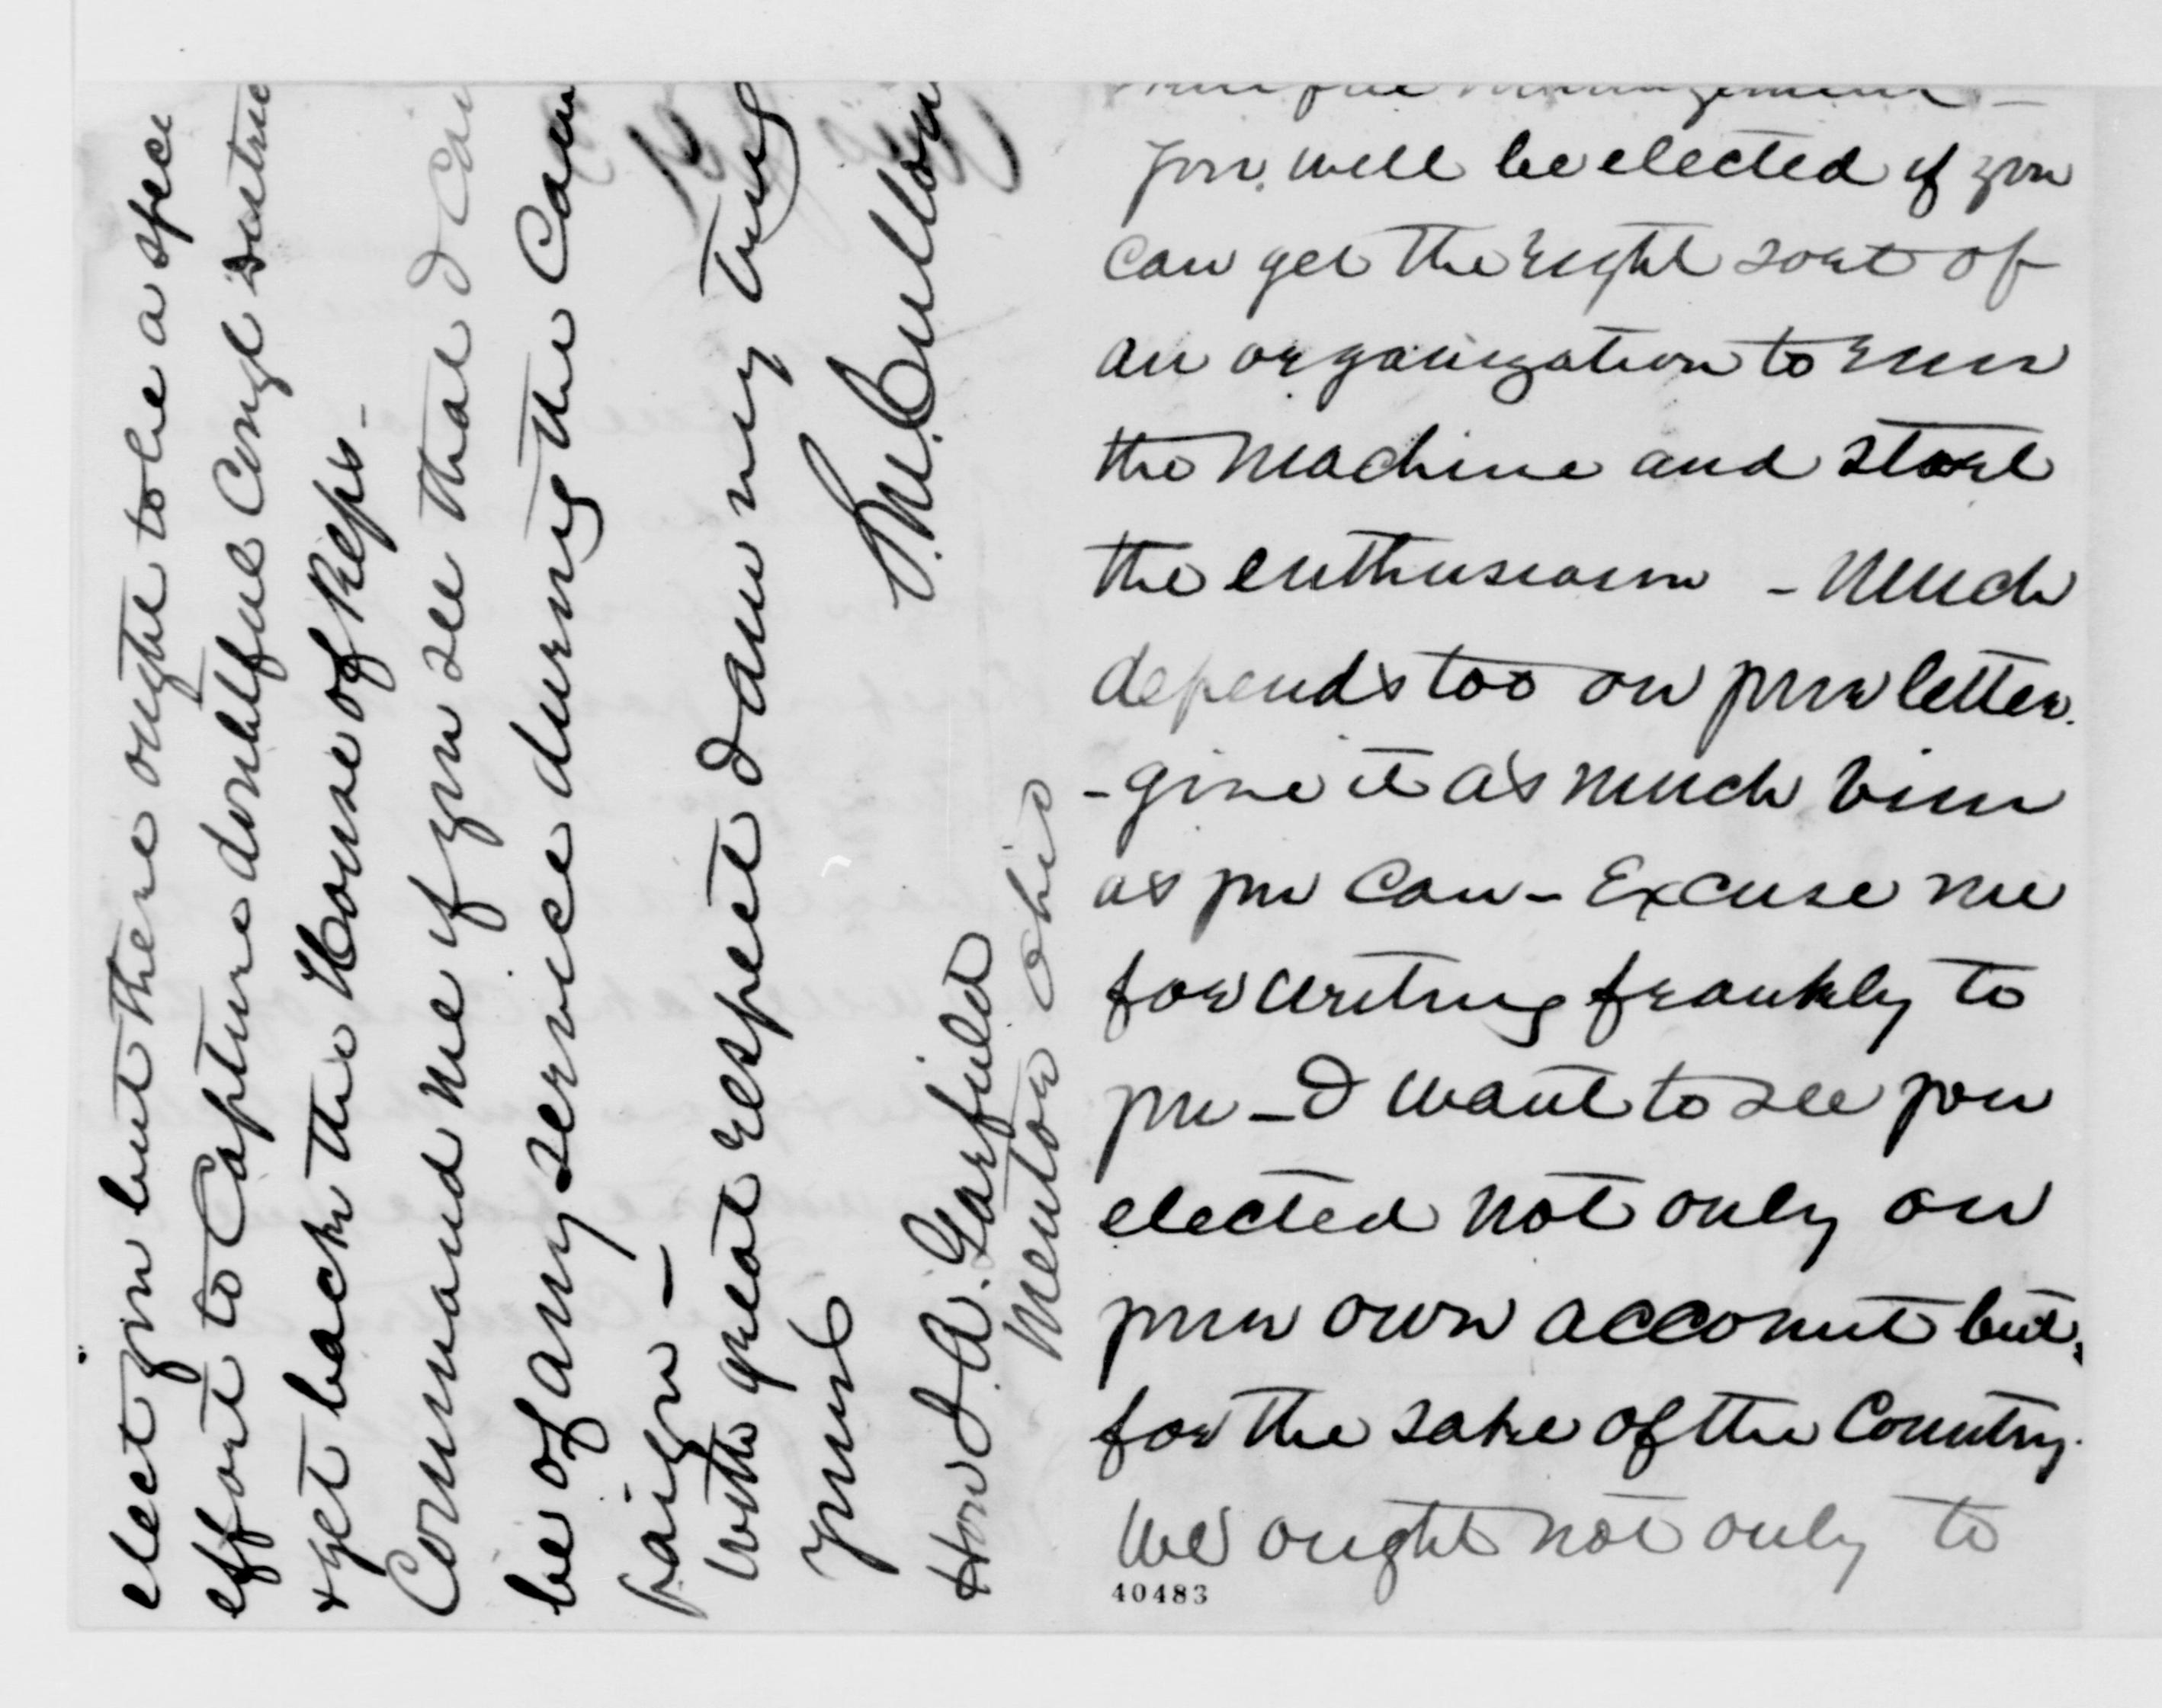 management –
you will be elected if you
can get the right sort of
an organization to run
the machine and start
the enthusiasm – Much
depends too on your letter.
– give it as much vim
as you can – Excuse me
for writing frankly to
you – I want to see you
elected not only on
your own account but,
for the sake of the Country.
We ought not only to
40483
elect you but there ought to be a spec
effort to Capture doubtful Congl distric
& get back the House of Reps –
Command me if you see that I can
be of any service during the Cam
paign –
With great respect I am very truly
yours
S. M. Cullom
Hon J. A. Garfield
Mentor Ohio